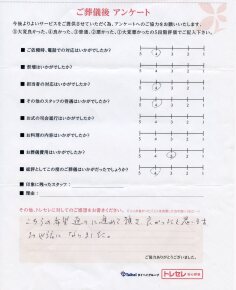 ご葬儀後 アンケート
今後よりよいサービスをご提供させていただく為、アンケートへのご協力をお願いいたします。
⑤大変良かった、④良かった、③普通、②悪かった、①大変悪かったの5段階評価でご記入下さい。
■ご依頼時、電話での対応はいかがでしたか?
5 4 3 2 1
■祭壇はいかがでしたか?
5 4 3 2 1
■担当者の対応はいかがでしたか?
5 4 3 2 1
■その他のスタッフの普通はいかがでしたか?
5 4 3 2 1
■お式の司会進行はいかがでしたか?
5 4 3 2 1
■お料理の内容はいかがでしたか?
5 4 3 2 1
■お葬儀費用はいかがでしたか?
5 4 3 2 1
■総評としてこの度のご葬儀はいかがだったでしょうか?
5 4 3 2 1
■印象に残ったスタッフ:
■理由:
その他、トレセレに対してのご感想をお書きください。
こちらの希望通りに進めて頂き良かったと思います
お世話になりました。
ご協力ありがとうございました。
Taihei
トレセレ